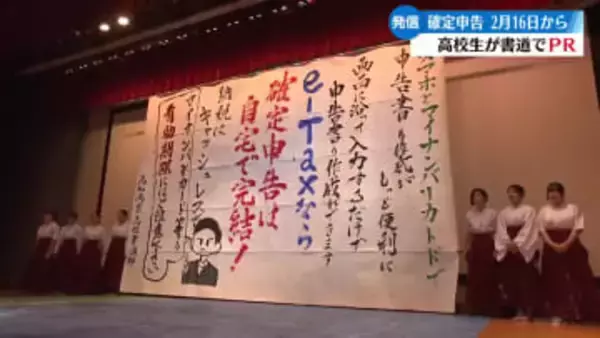 発信 確定申告 2月16日から
高校生が書道でPR
スマホとマイナンバーカードで
申告書の作成が
もっと便利に
画面に沿って入力するだけで
申告書が作成できます
e-Taxなら
確定申告は
自宅で完結!
納税は
キャッシュレスで
マイナンバーカード等の
有効期限にはご注意ください